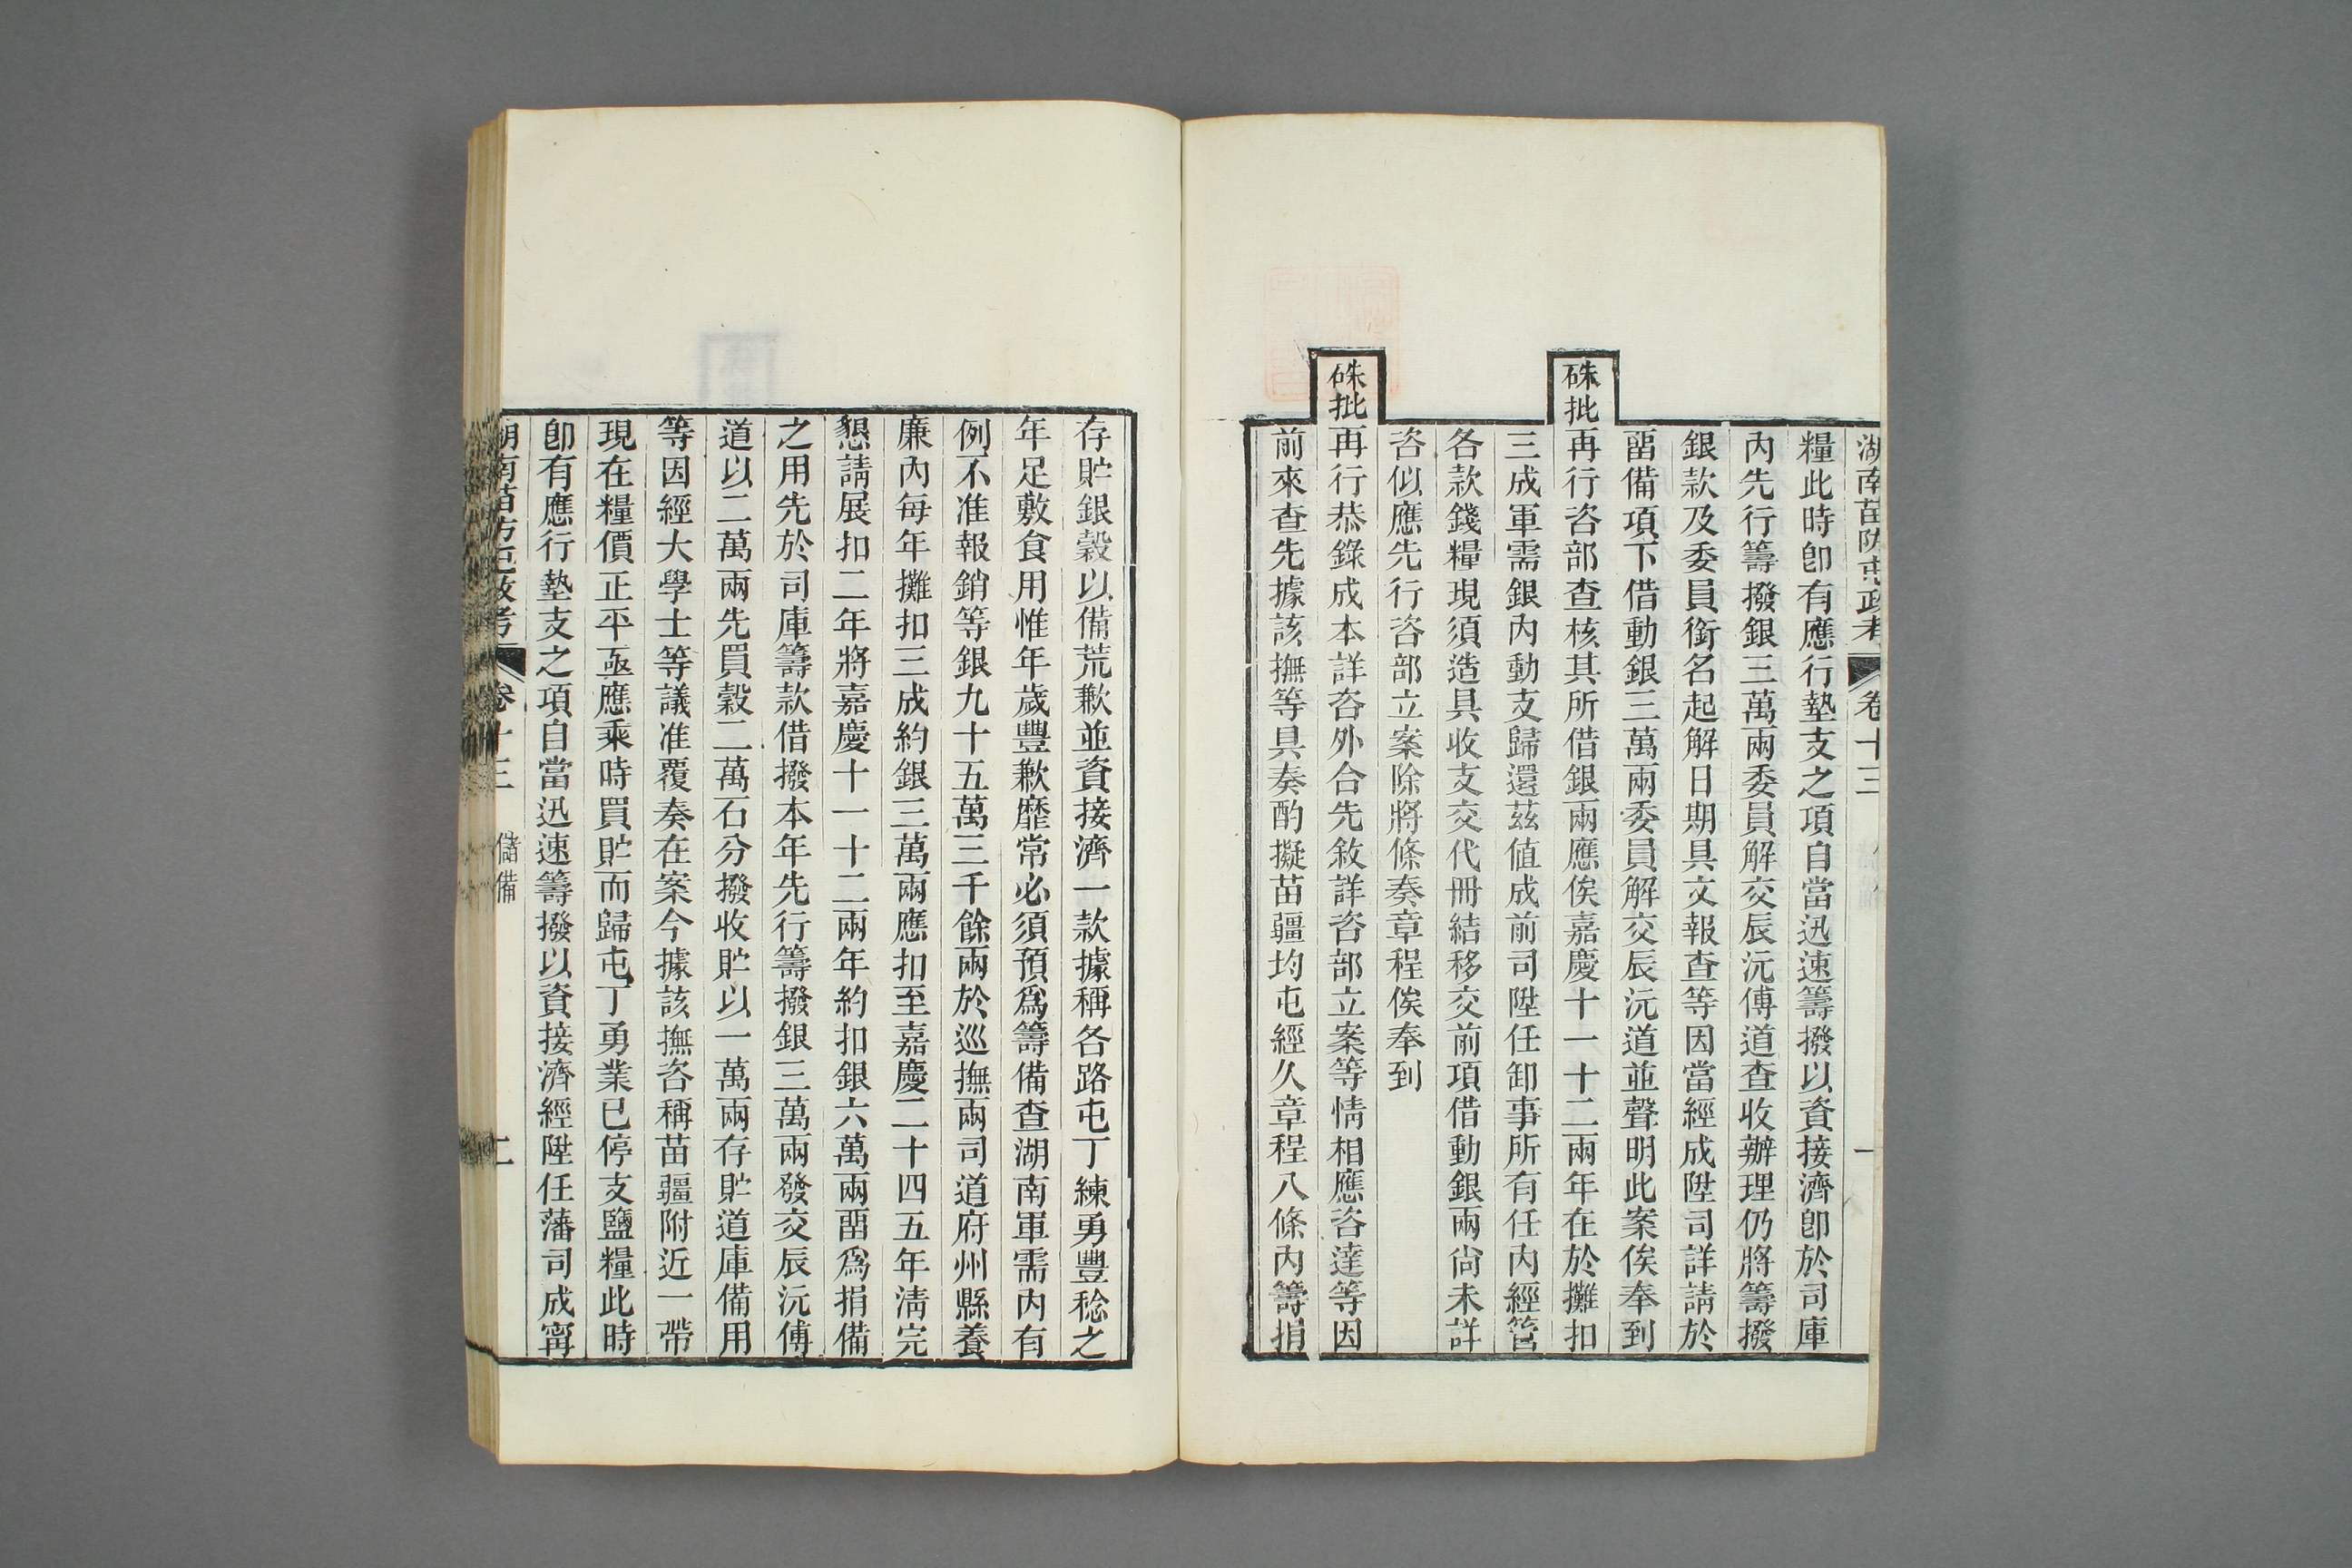 湖南苗防屯政考 卷十三 一
糧此時卽有應行墊支之項自當迅速籌撥以資接濟卽於司庫
內先行籌撥銀三萬兩委員解交辰沅傅道查收辦理仍將籌撥
銀款及委員銜名起解日期具文報查等因當經成陞司詳請於
畱備項下借動銀三萬兩委員解交辰沅道並聲明此案俟奉到
硃批再行咨部查核其所借銀兩應俟嘉慶十一十二兩年在於攤扣
三成軍需銀內動支歸還茲值成前司陞任卸事所有任內經管
各款錢糧現須造具收支交代冊結移交前項借動銀兩尙未詳
咨似應先行咨部立案除將條奏章程俟奉到
硃批再行恭錄成本詳咨外合先敘詳咨部立案等情相應咨達等因
前來查先據該撫等具奏酌擬苗疆均屯經久章程八條內籌捐
存貯銀穀以備荒歉並資接濟一款據稱各路屯丁練勇豐稔之
年足敷食用惟年歲豐歉靡常必須預爲籌備查湖南軍需內有
例不准報銷等銀九十五萬三千餘兩於巡撫兩司道府州縣養
廉內每年攤扣三成約銀三萬兩應扣至嘉慶二十四五年淸完
懇請展扣二年將嘉慶十一十二兩年約扣銀六萬兩畱爲捐備
之用先於司庫籌款借撥本年先行籌撥銀三萬兩發交辰沅傅
道以二萬兩先買穀二萬石分撥收貯以一萬兩存貯道庫備用
等因經大學士等議准覆奏在案今據該撫咨稱苗疆附近一帶
現在糧價正平亟應乘時買貯而歸屯丁勇業已停支鹽糧此時
卽有應行墊支之項自當迅速籌撥以資接濟經陞任藩司成寧
湖南苗防屯政考 卷十三 儲備 二